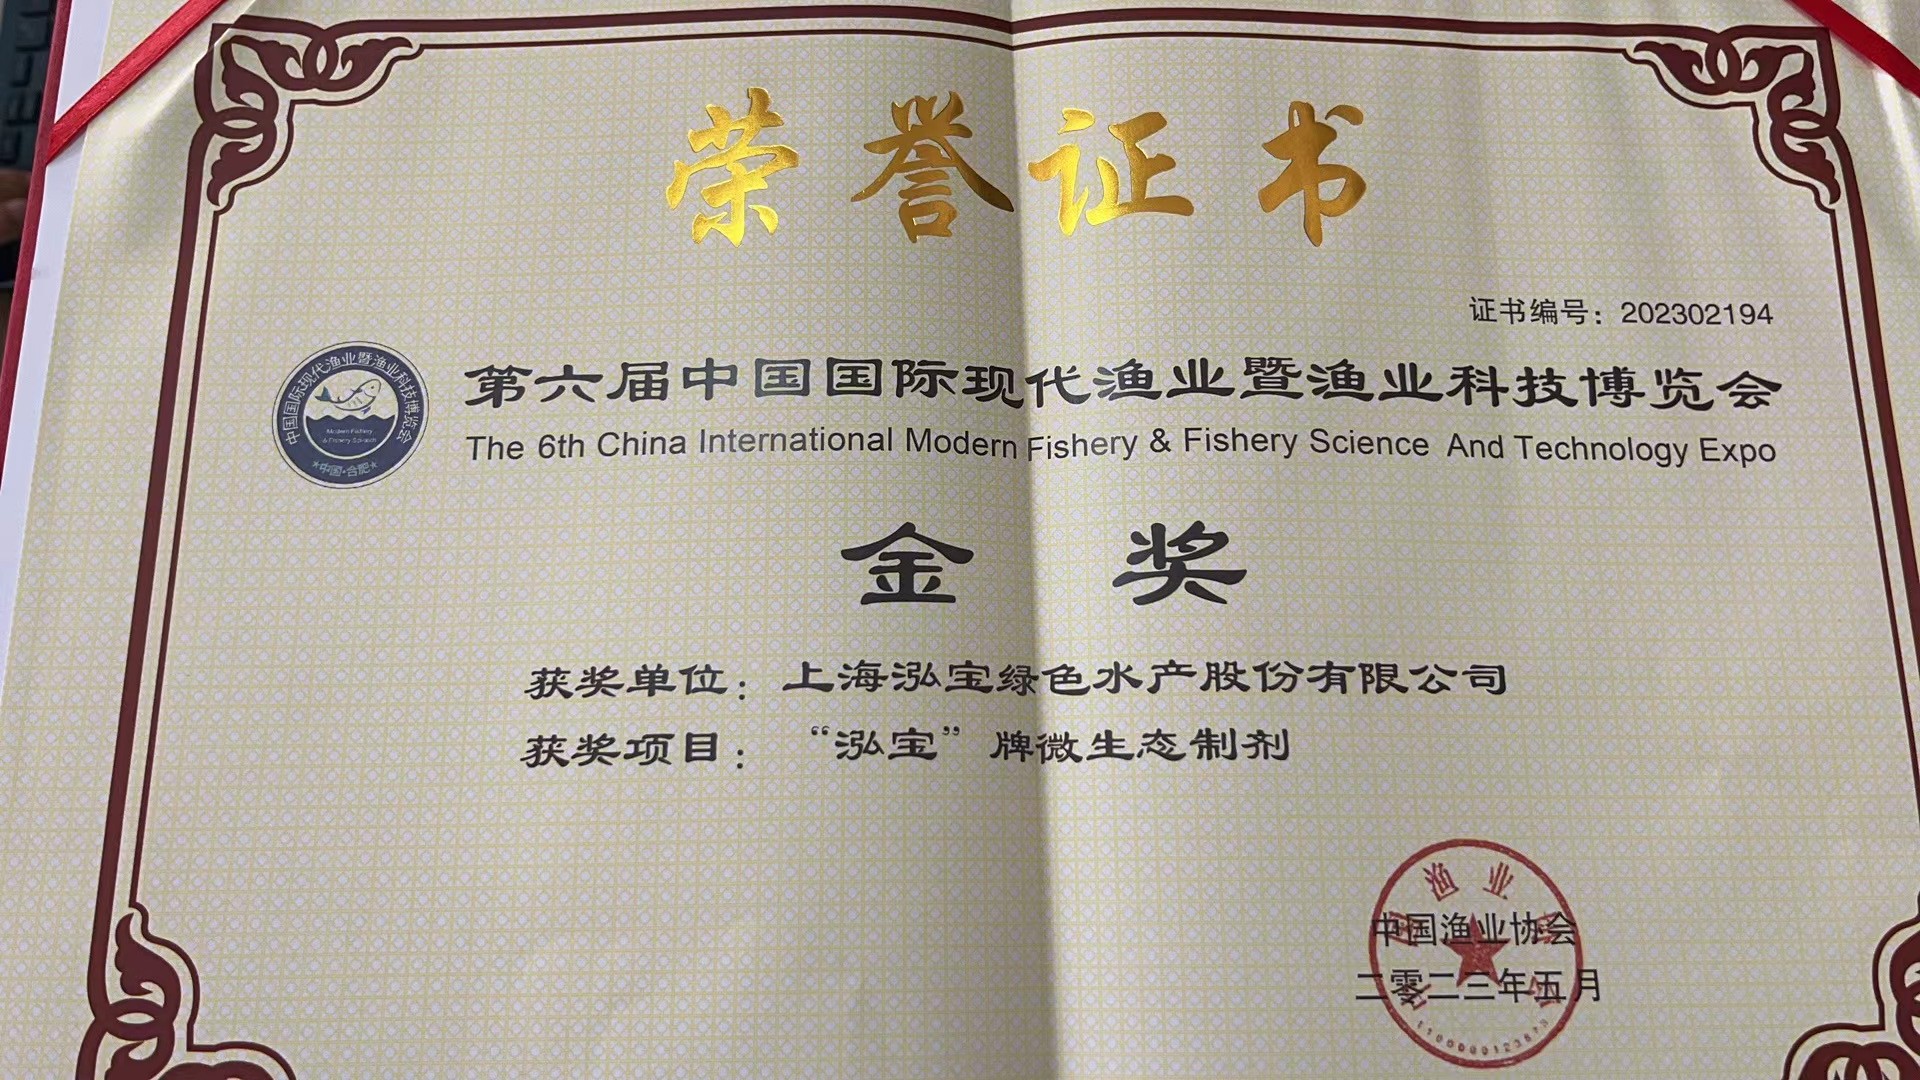 荣誉证书
证书编号：202302194
中国国际现代渔业暨渔业科技博览会
Modern Fishery
& Fishery Science
★中国·合肥★
第六届中国国际现代渔业暨渔业科技博览会
The 6th China International Modern Fishery & Fishery Science And Technology Expo
金奖
获奖单位：上海泓宝绿色水产股份有限公司
获奖项目：“泓宝”牌微生态制剂
中国渔业协会
二零二三年五月